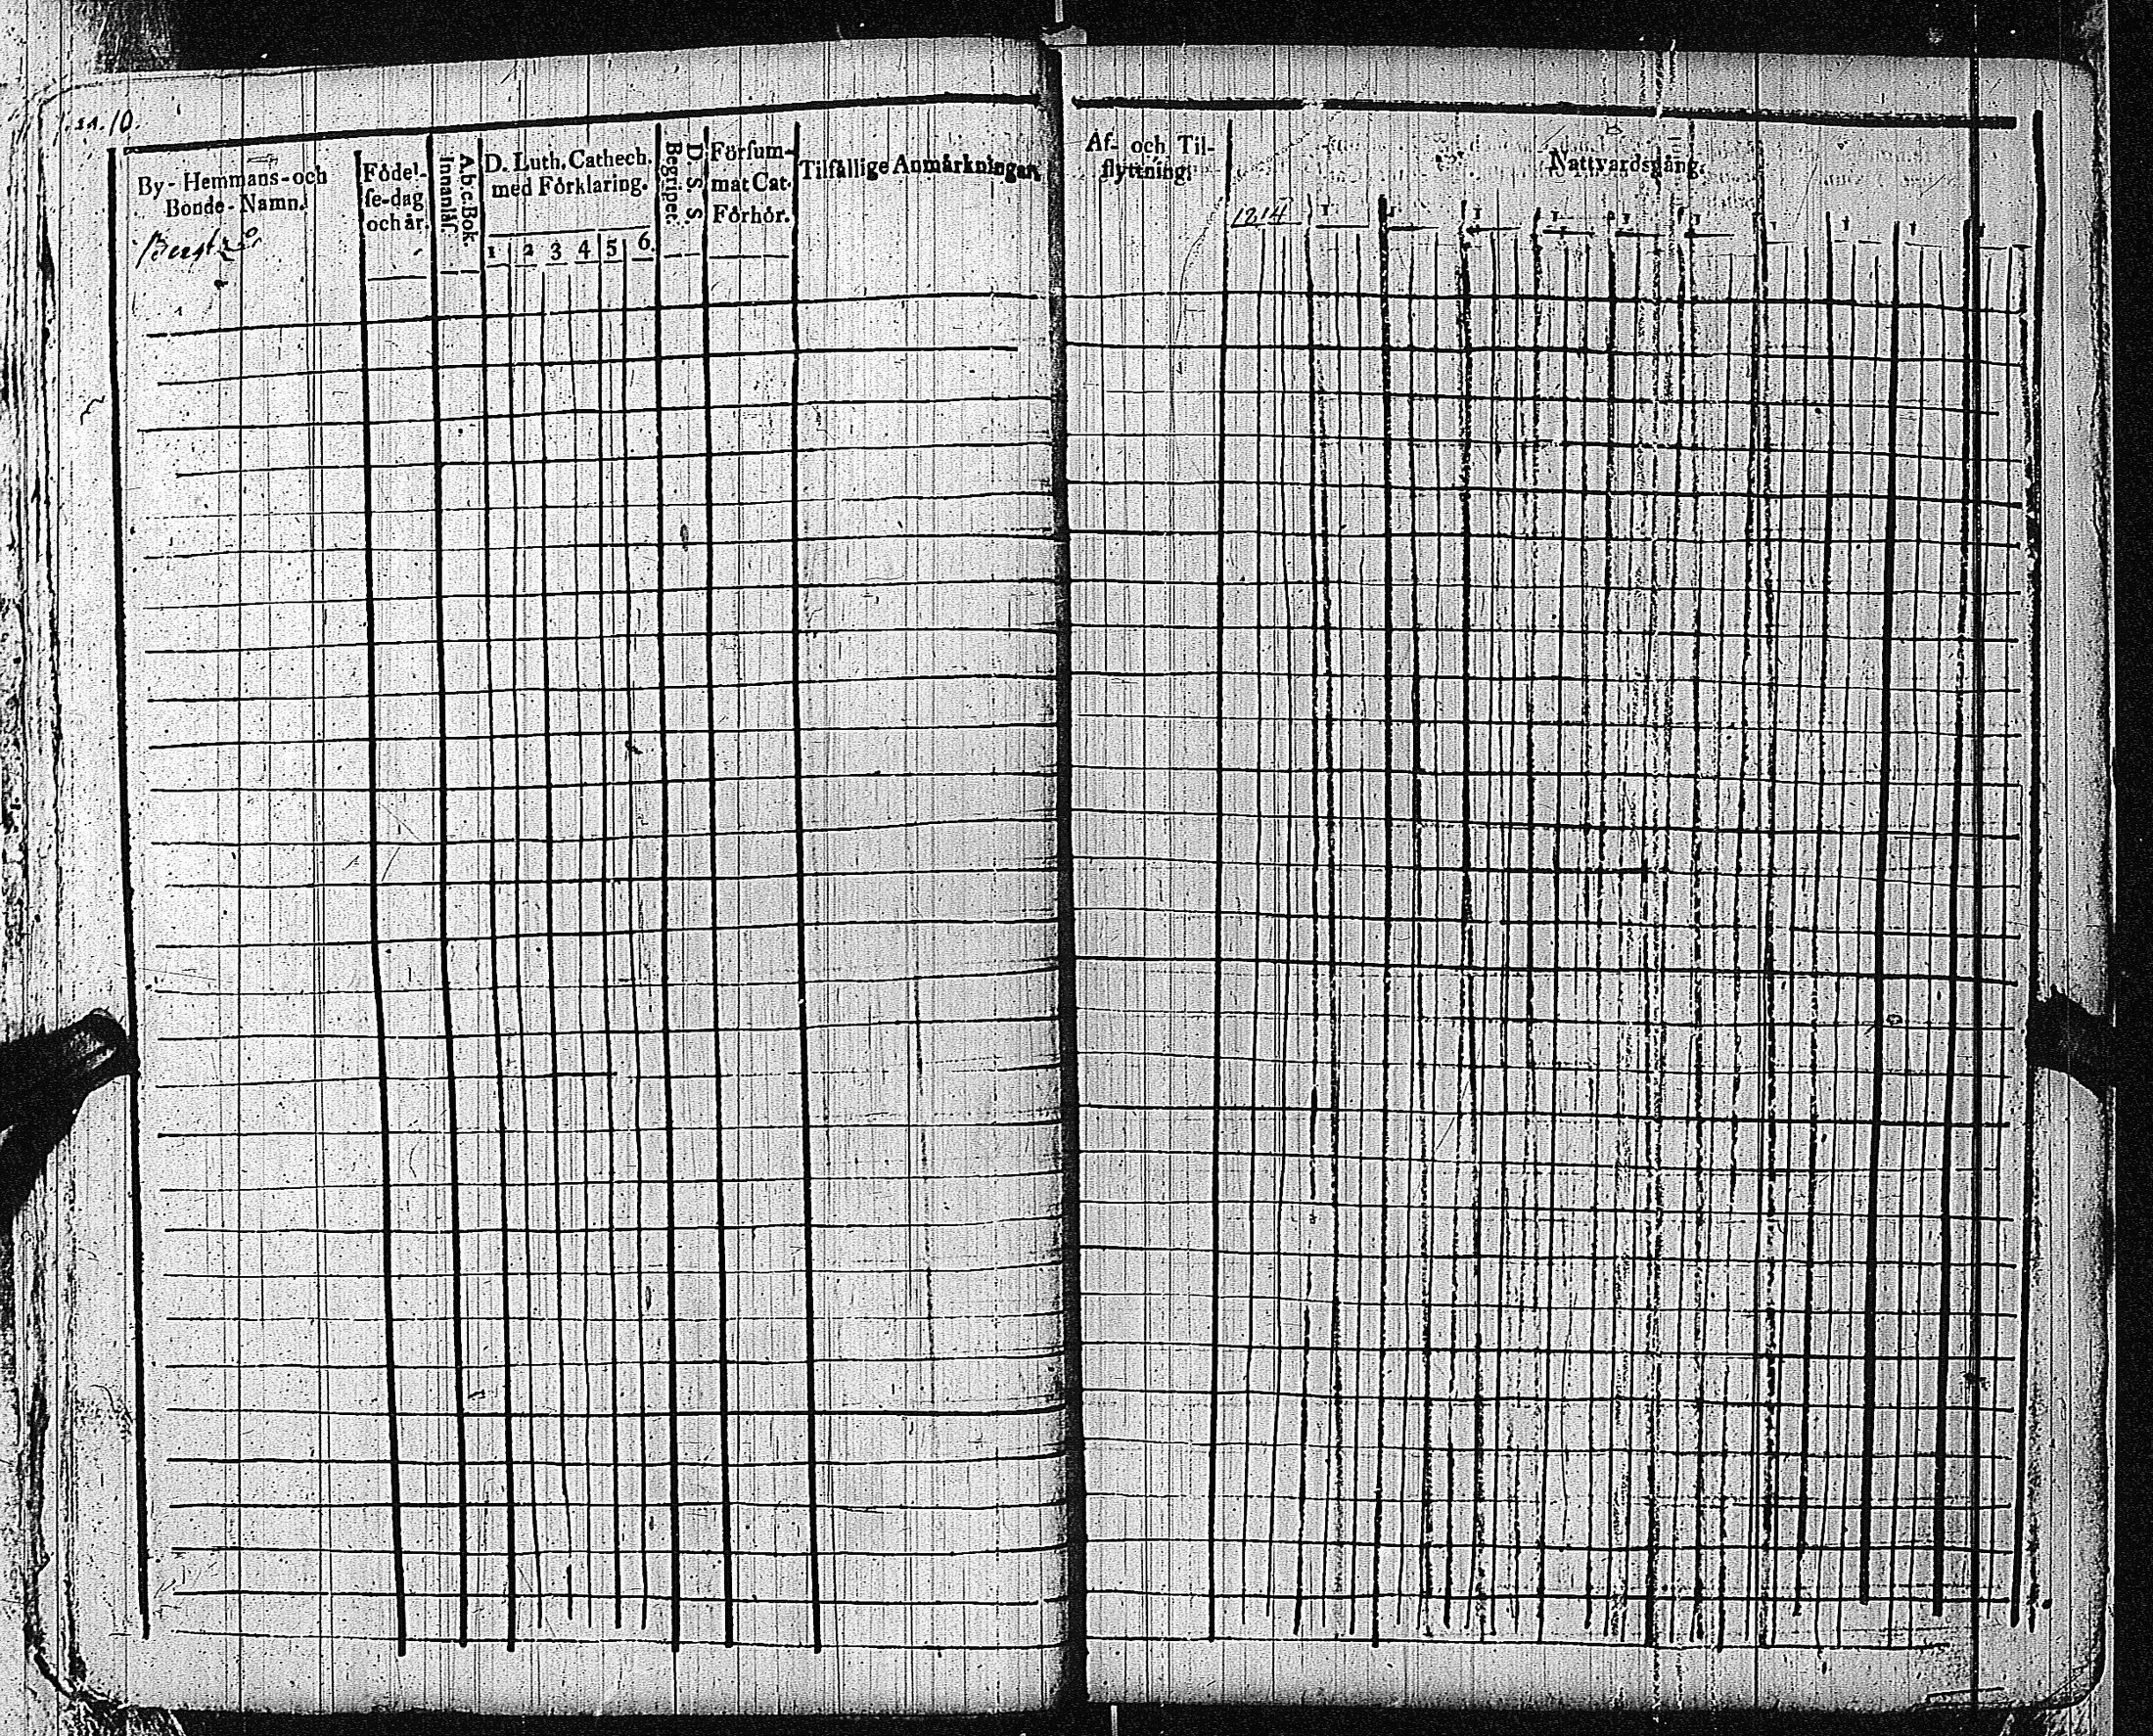 10.
By-Hemmans-och
Bonde-Namn.
Födel-
ſe-dag
och år.
A.b.c. Bok.
Innanläſ.
D. Luth. Cathech.
med Förklaring.
1 2 3 4 5 6.
D. S. S.
Begripet.
Förſum-
mat Cat.
Förhör.
Tilfällige Anmärkningar.
Af- och Til-
flyttning.
Nattvardsgång.
1 1 1 1 1 1 1 1 1 1